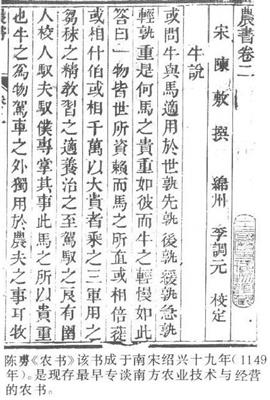 農書卷二
宋 陳旉 撰 綿州 李調元 校定
牛說
或問牛與馬適用於世孰先孰後孰緩孰急孰
輕孰重是何馬之貴重如彼而牛之輕慢如此
答曰二物皆世所資賴而馬之所直或相倍蓰
或相什伯或相千萬以大貴者乘之三軍用之
芻秣之精教習之適養治之至駕馭之良有圉
人校人馭夫馭僕專掌其事此馬之所以貴重
也牛之爲物駕車之外獨用於農夫之事耳牧
陈旉《农书》该书成于南宋绍兴十九年(1149
年)。是现存最早专谈南方农业技术与经营
的农书。